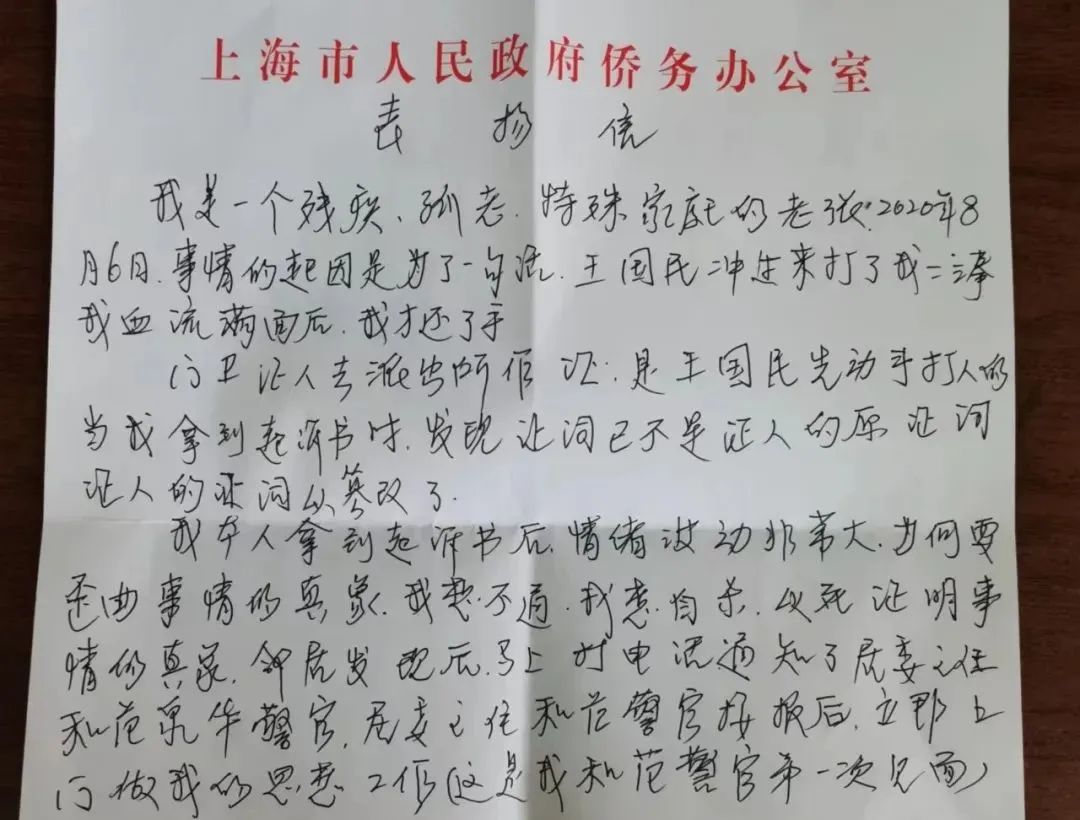 上海市人民政府侨务办公室
表扬信
我是一个残疾、孤老、特殊家庭的老张.2020年8
月6日.事情的起因是为了一句话.王国民冲过来打了我二拳
我血流满面后.我才还了手
门卫证人去派出所作证:是王国民先动手打人的
当我拿到起诉书时.发现证词已不是证人的原证词
证人的证词从篡改了.
我本人拿到起诉书后.情绪波动非常大.为何要
歪曲事情的真象.我想不通.我想自杀.以死证明事
情的真象.邻居发现后.马上打电话通知了居委主任
和范泉华警官.居委主任和范警官接报后.立即上
门做我的思想工作(这是我和范警官第一次见面)